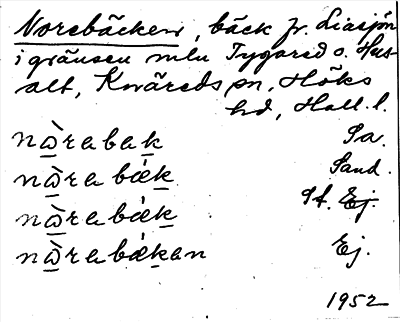 Norebäcken, bäck fr. Liasjön
i gränsen mln Tygared o. Hus-
alt, Kvåreds sn, Höks
hd, Hall. l.
nὼrabak Sa.
nὼra bǽk Sand.
nὼra bǽk St. Ej.
nὼra bǽkan Ej.
1952